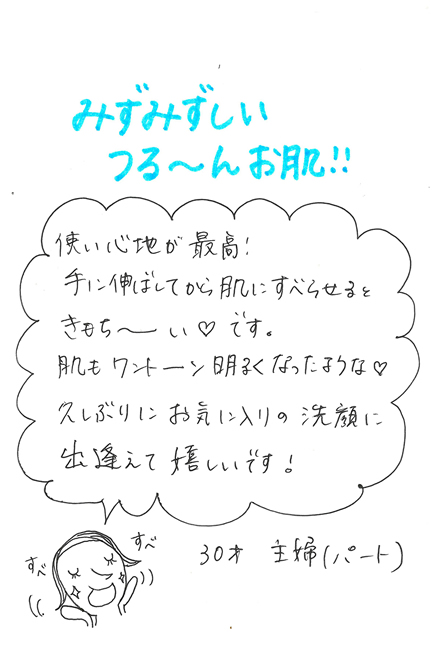 みずみずしい
つる〜んお肌!!
使い心地が最高!
手に伸ばしてから肌にすべらせると
きもち〜い♡です。
肌もワントーン明るくなったような♡
久しぶりにお気に入りの洗顔に
出逢えて嬉しいです!
すべ
すべ
30才 主婦(パート)